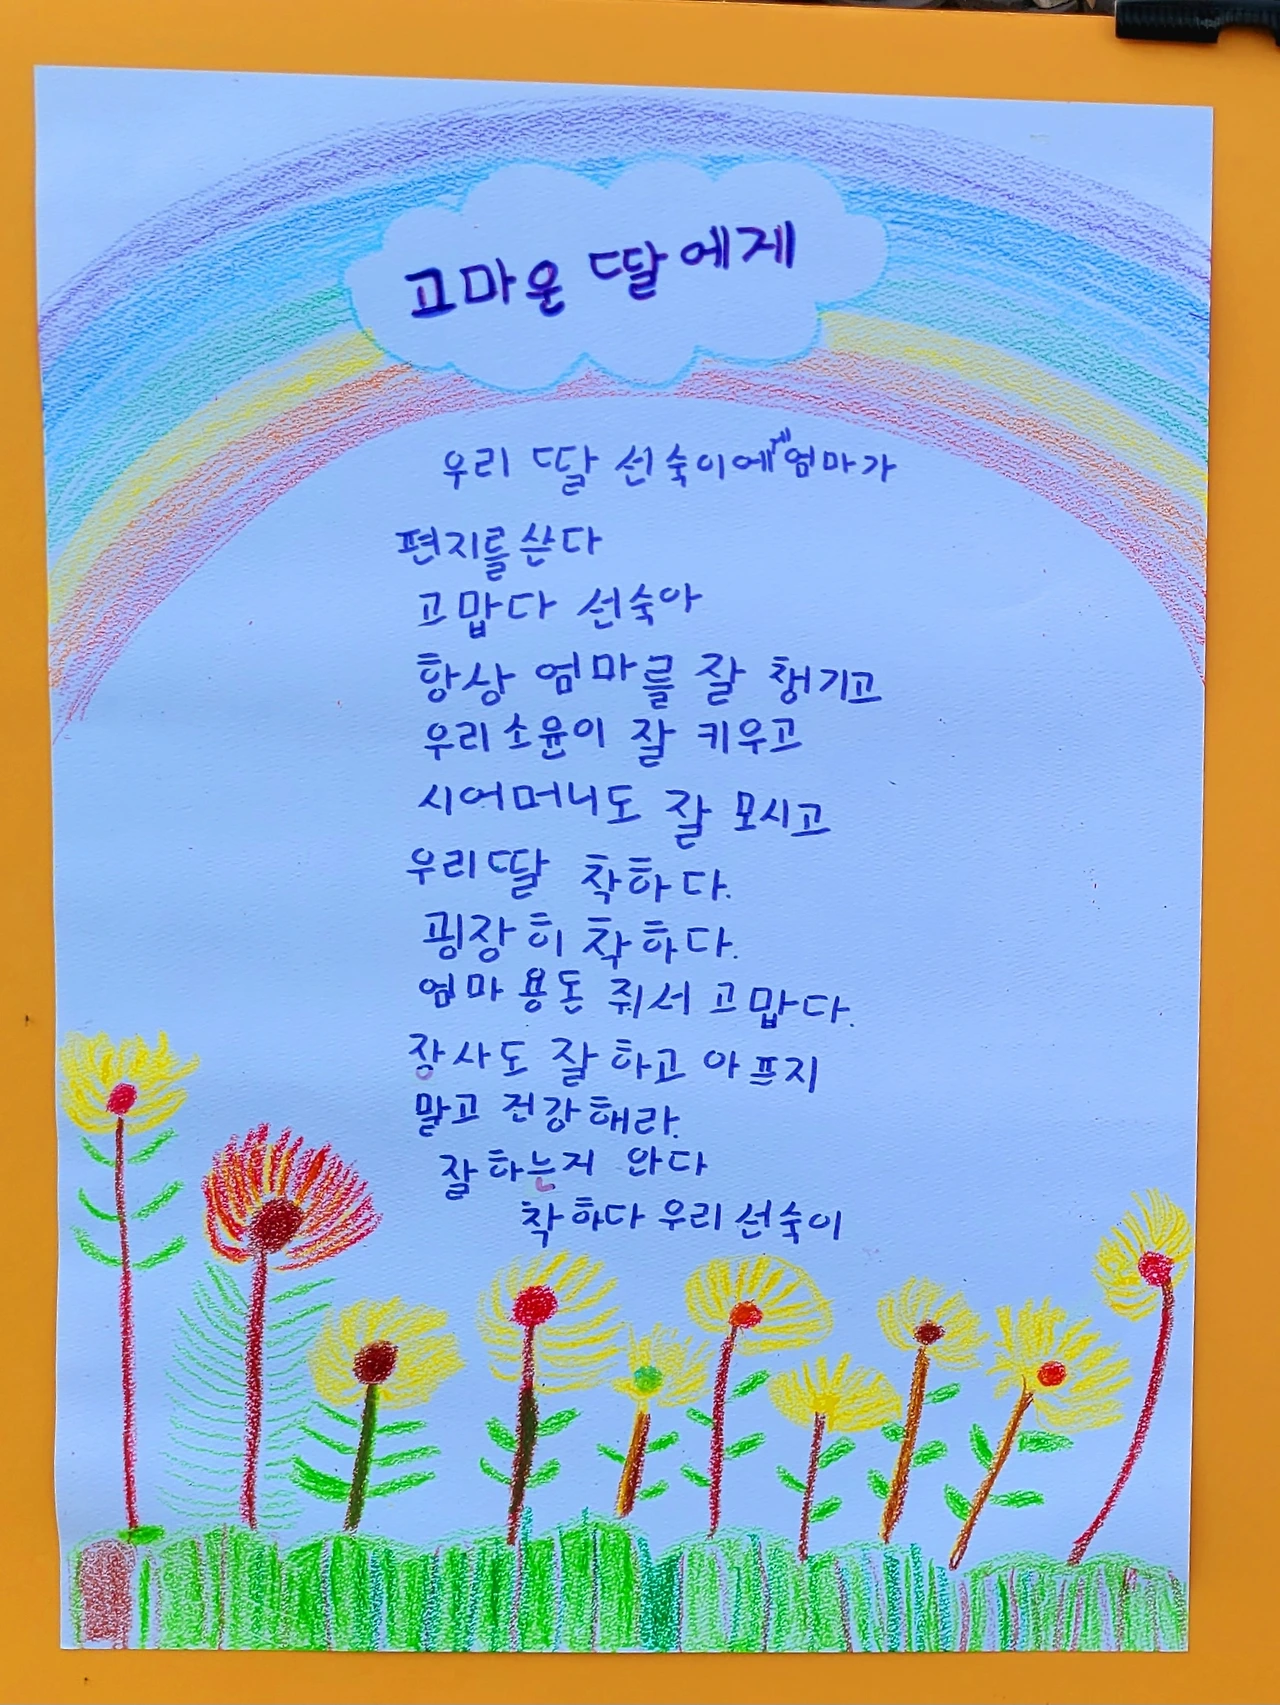 고마운 딸에게
우리 딸 선숙이에게 엄마가
편지를 산다
고맙다 선숙아
항상 엄마를 잘 챙기고
우리 소윤이 잘 키우고
시어머니도 잘 모시고
우리딸 착하다.
굉장히 착하다.
엄마 용돈 줘서 고맙다.
장사도 잘 하고 아프지
말고 건강해라.
잘하는거 안다
착하다 우리 선숙이